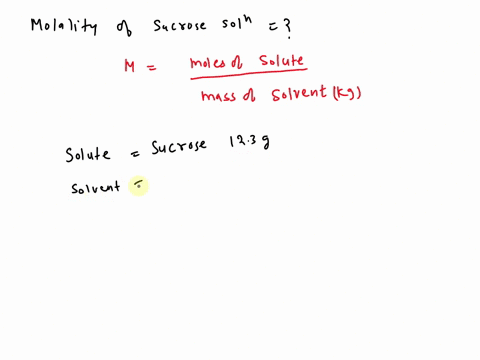 Molality of Sucrose solⁿ = ?
M = moles of Solute
mass of Solvent (kg)
Solute = Sucrose 12.3 g
Solvent =